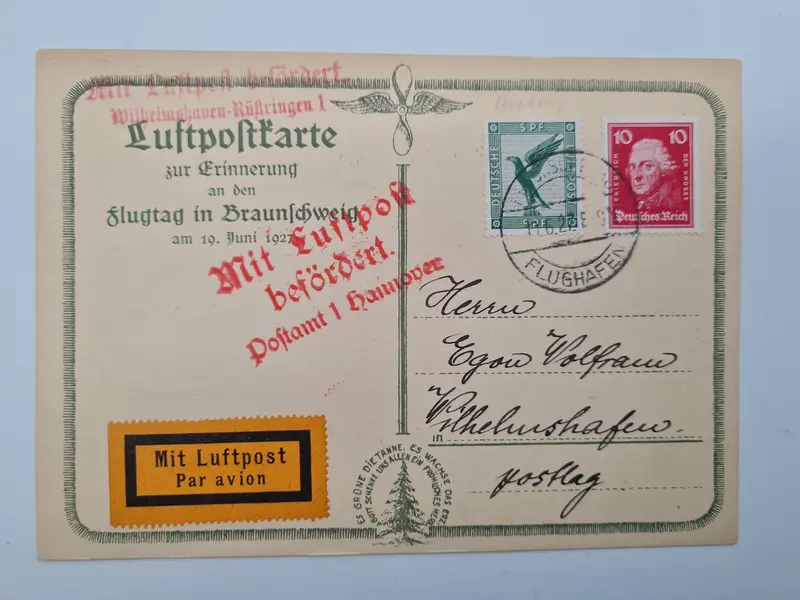 Mit Luftpost befördert
Wilhelmshaven-Rüstringen 1
Luftpostkarte
zur Erinnerung
an den
Flugtag in Braunschweig
am 19. Juni 1927
Mit Luftpost
befördert.
Postamt 1 Hannover
DEUTSCHE
5 PF.
5 PF.
10 10
FRIEDRICH
DER GROSSE
Deutsches Reich
FLUGHAFEN
Herrn
Egon Wolfram
in Wilhelmshafen.
postlag
Mit Luftpost
Par avion
ES GRÜNE DIE TANNE, ES WACHSE DAS ERZ
GOTT SCHENKE UNS ALLEN EIN FRÖHLICHES HERZ